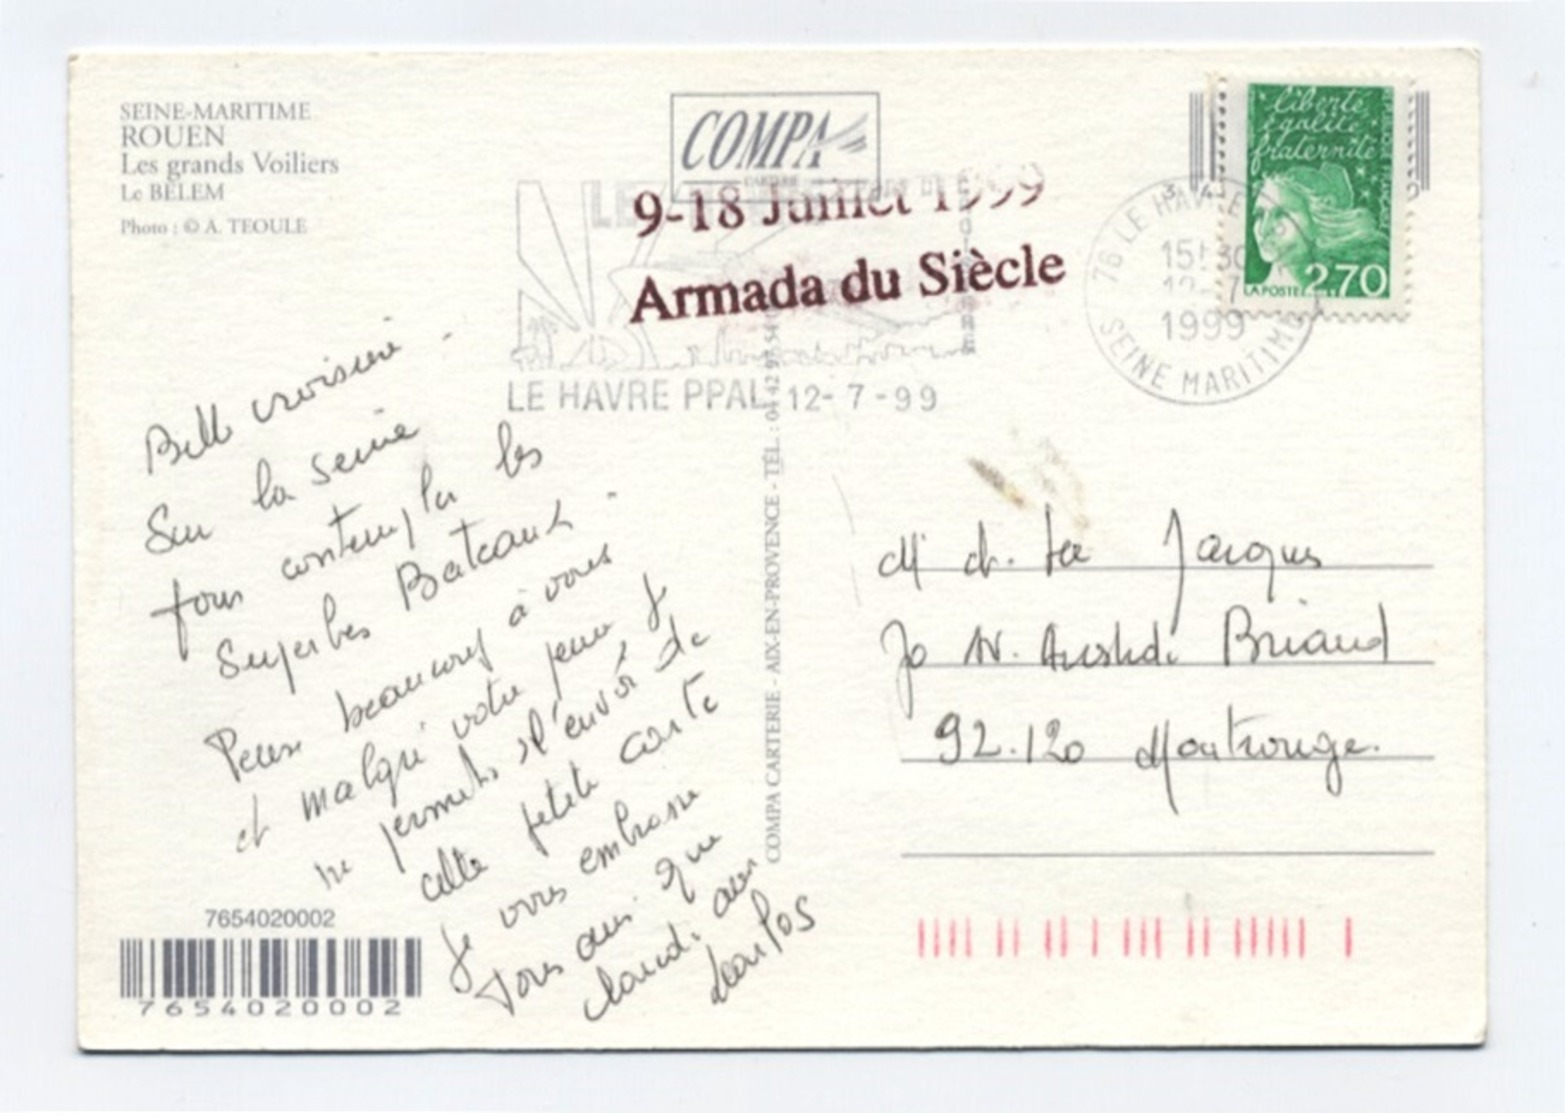 SEINE-MARITIME
ROUEN
Les grands Voiliers
Le BÉLEM
Photo : © A. TEOULE
COMPA
CARTERIE
LE
9-18 Juillet 1999
Armada du Siècle
LE HAVRE PPAL 12-7-99
liberté
égalité
fraternité
RÉPUBLIQUE FRANÇAISE
LA POSTE
2,70
76 LE HAVRE
15 30
12-7
1999
SEINE MARITIME
Belle croisière
Sur la seine
pour contempler les
Superbes Bateaux
Pense beaucoup à vous
et malgré votre peine je
me permets l'envoi de
cette petite carte
Je vous embrasse
Tous ainsi que
COMPA CARTERIE - AIX-EN-PROVENCE - TÉL. : 04 42 97 54
Jacques
70 AV. Aristide Briand
92.120 Montrouge.
7654020002
7654020002